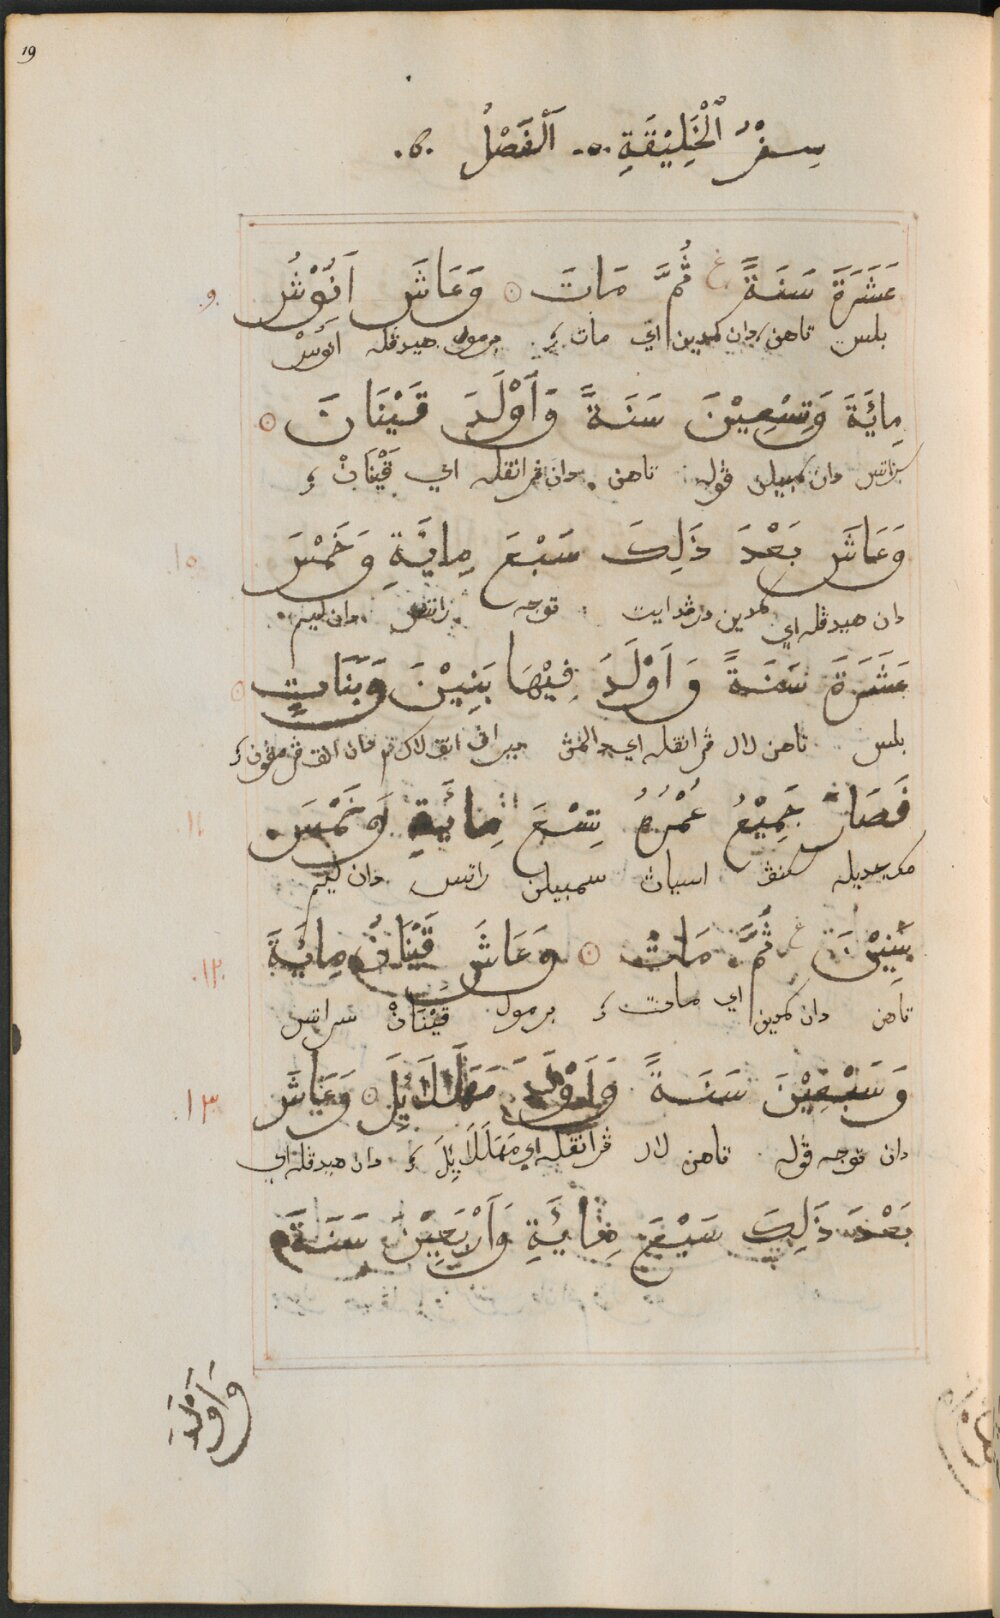 19
سِفْرُ ٱلْخَلِيْقَةِ .٥. اَلْفَصْلُ
عَشَرَةَ سَنَةً غ ثُمَّ مَاتَ ۞ وَعَاشَ اَنُوْشُ
بلس تاهن دان كمدين اي مات برمول هيدڤله انُوسْ
مِائَةَ وَتِسْعِيْنَ سَنَةً وَاَوْلَدَ قَيْنَانَ ۞
سراتس دان سمبيلن ڤوله تاهن دان ڤرانقله اي قَيْنَانْ
وَعَاشَ بَعْدَ ذَلِكَ سَبْعَ مِايَةِ وَخَمْسَ
دان هيدڤله اي كمدين درڤد ايت توجه راتس دان ليم
عَشَرَةَ سَنَةً وَاَوْلَدَ فِيْهَا بَنِيْنَ وَبَنَاتٍ ۞
بلس تاهن لال ڤرانقله اي انق لاكي دان انق ڤرمڤون
فَصَارَ جَمِيْعُ عُمْرُهُ تِسْعَ مِائَيةِ وَخَمْسَ
مك جديله سمبيلن راتس دان ليم
سِنِيْنَ غ ثُمَّ مَاتْ ۞ وَعَاشَ قَيْنَانُ مِايَةَ
تاهن دان كمدين اي مات برمول قَيْنَانْ سراتس
وَسَبْعِيْنَ سَنَةً وَاَوْلَدَ مَهَلَلَائِلَ ۞ وَعَاشَ
دان توجه ڤوله تاهن لال ڤرانقله اي مَهَلَلَايِلَ دان هيدڤله اي
بَعْدَ ذَلِكَ سَبْعَ مِائَةِ وَاَرْبَعِيْنَ سَنَةً
وَاَوْلَدَ
و
١٠
١١
.١٢.
.١٣